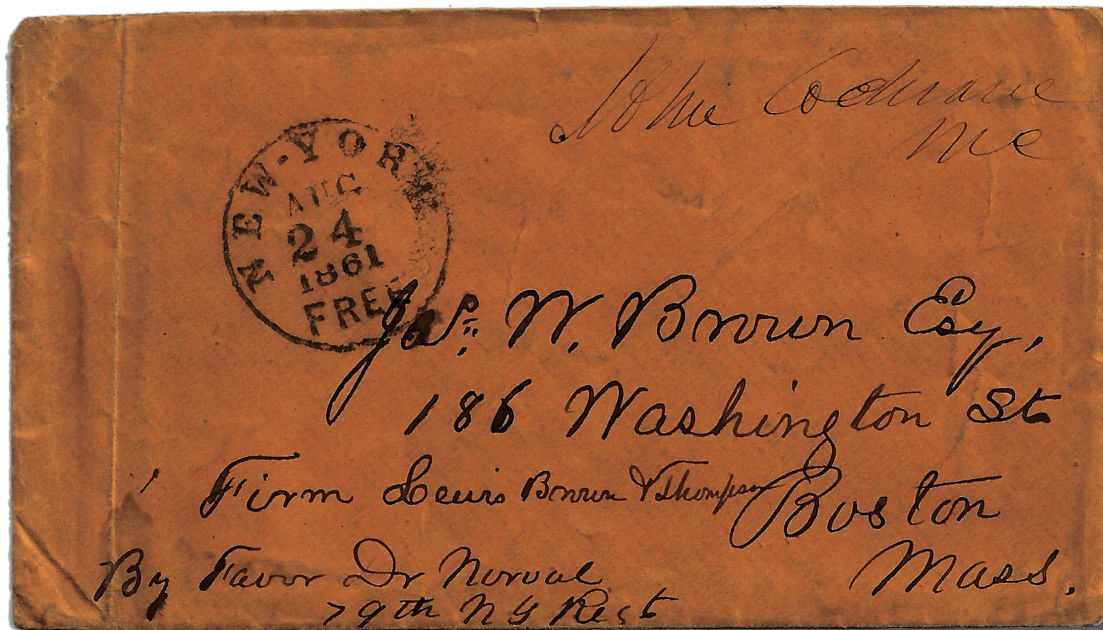 John Cochrane
MC
NEW-YORK
AUG
24
1861
FREE
Jas. W. Brown Esq,
186 Washington St
Firm Lewis Brown & Thompson
Boston
Mass.
By Favor Dr Norval
79th N Y Regt